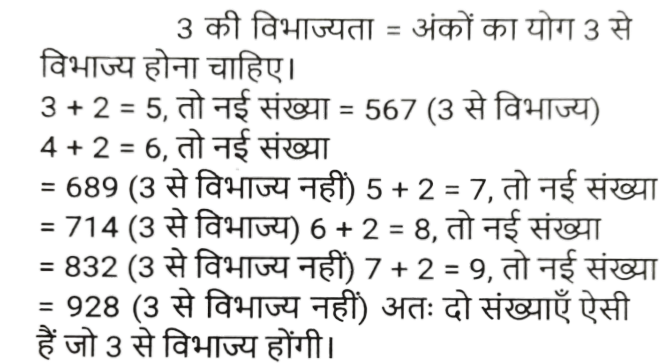 3 की विभाज्यता = अंकों का योग 3 से
विभाज्य होना चाहिए।
3 + 2 = 5, तो नई संख्या = 567 (3 से विभाज्य)
4 + 2 = 6, तो नई संख्या
= 689 (3 से विभाज्य नहीं) 5 + 2 = 7, तो नई संख्या
= 714 (3 से विभाज्य) 6 + 2 = 8, तो नई संख्या
= 832 (3 से विभाज्य नहीं) 7 + 2 = 9, तो नई संख्या
= 928 (3 से विभाज्य नहीं) अतः दो संख्याएँ ऐसी
हैं जो 3 से विभाज्य होंगी।